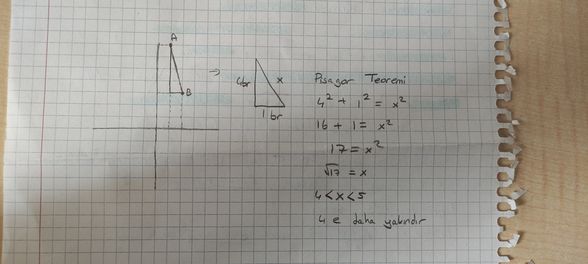 A
B
4br
x
1 br
Pisagor Teoremi
4² + 1² = x²
16 + 1 = x²
17 = x²
√17 = x
4 < x < 5
4 e daha yakındır